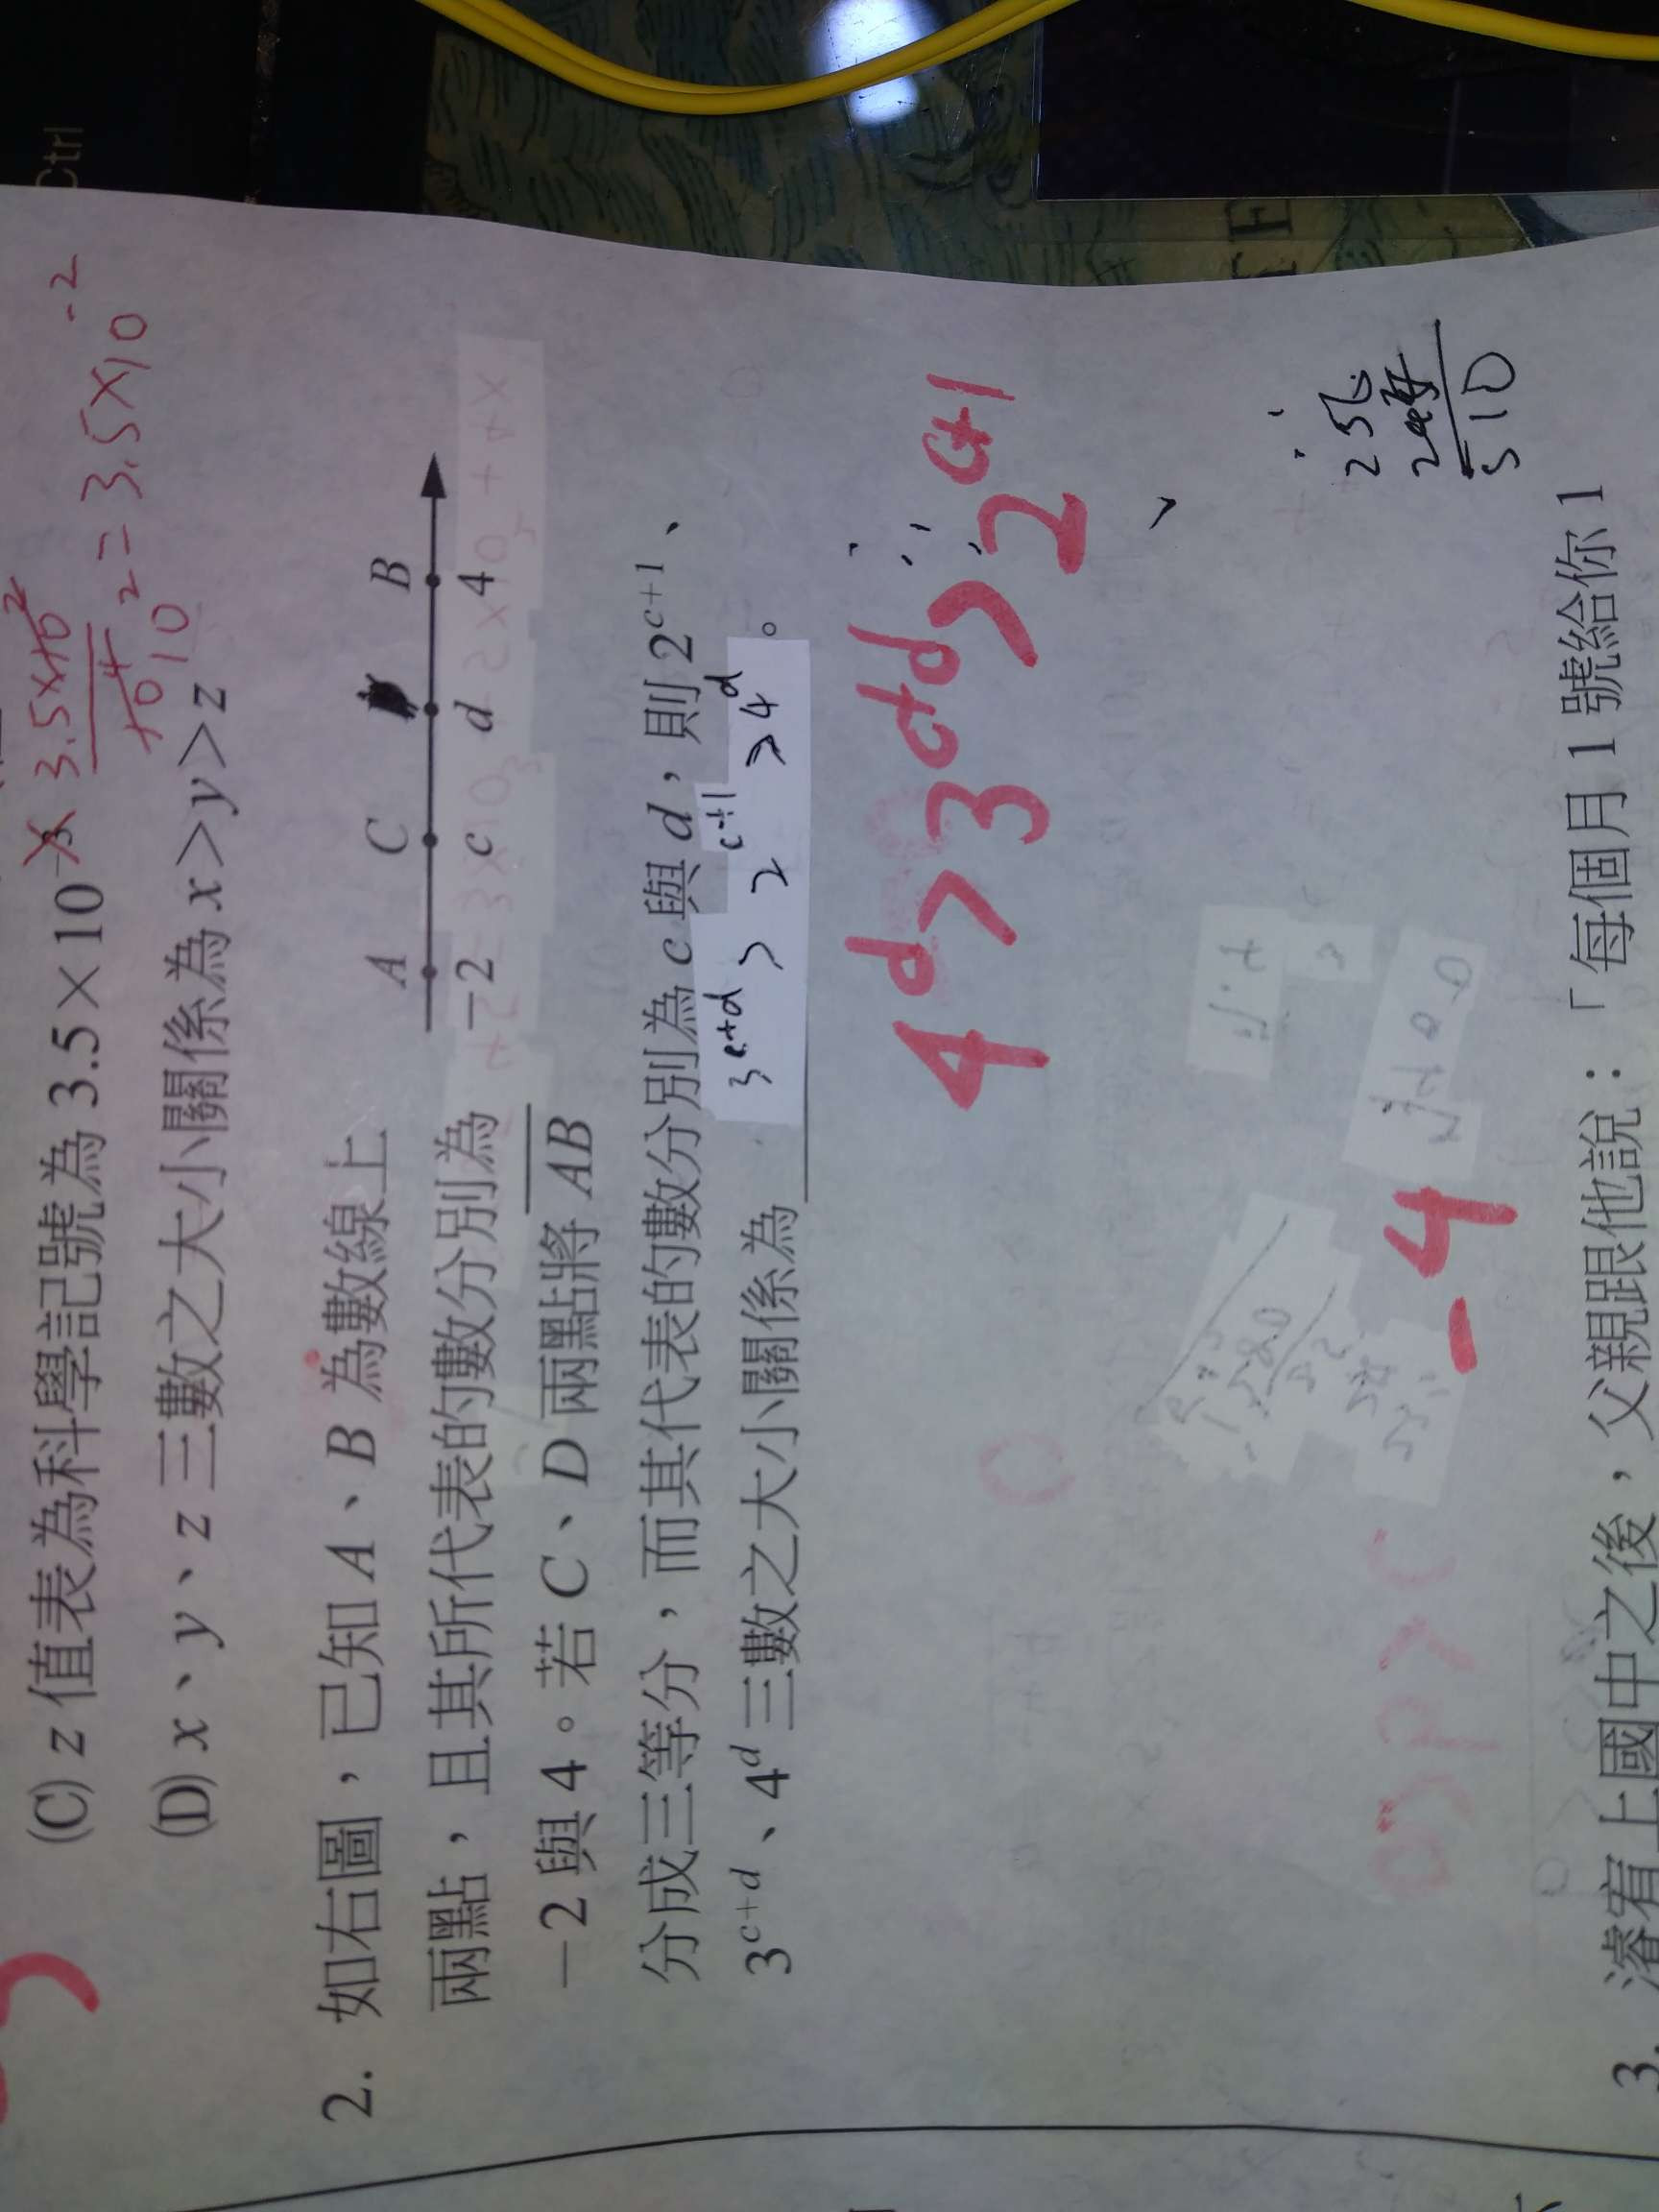 Ctrl
(C) z 值表為科學記號為 3.5×10⁻³ ✗ 3.5×10² / 10⁴ 10² = 3.5×10⁻²
(D) x、y、z 三數之大小關係為 x>y>z
2. 如右圖,已知 A、B 為數線上
兩點,且其所代表的數分別為
−2 與 4。若 C、D 兩點將 AB
分成三等分,而其代表的數分別為 c 與 d,則 2^{c+1}、
3^{c+d}、4^d 三數之大小關係為 3^{c+d} > 2^{c+1} > 4^d 。
A C B
−2 c d 4
4^d > 3^{c+d} > 2^{c+1}
-4
256
510
3. 濬宥上國中之後,父親跟他說:「每個月 1 號給你 1